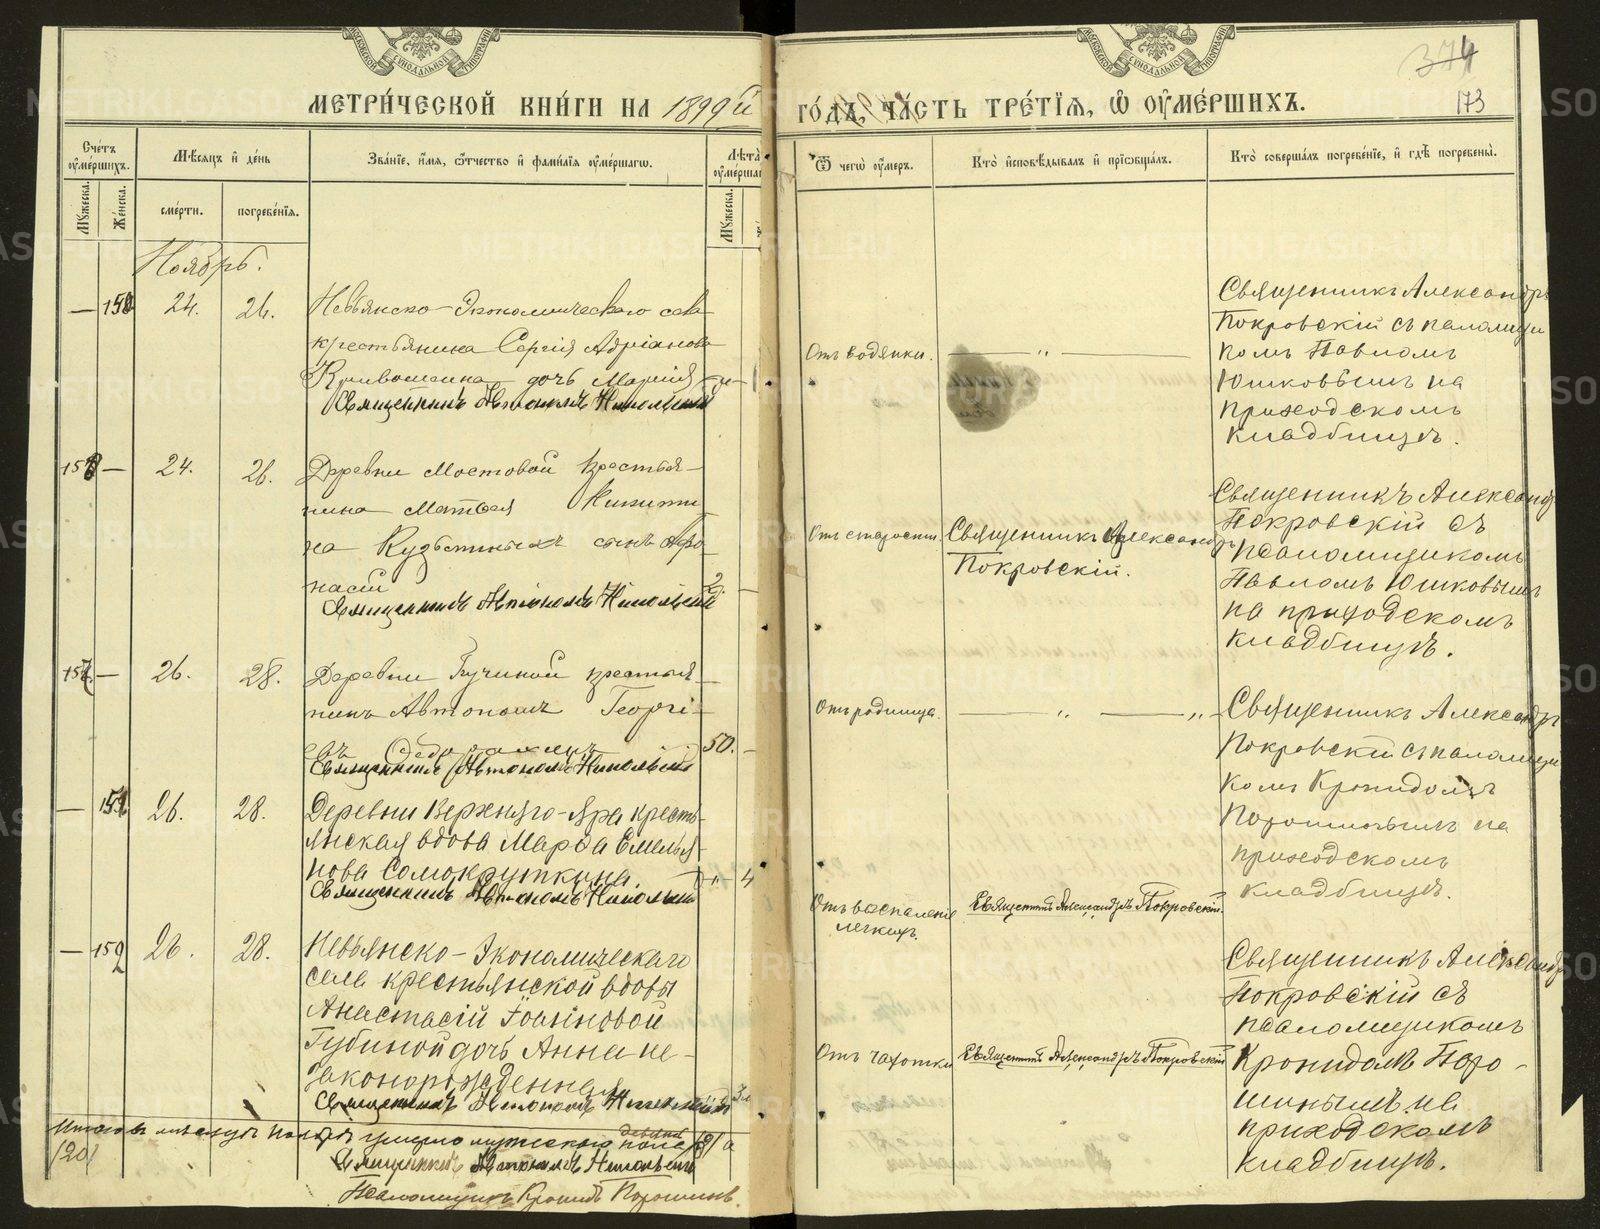 МЕТРИ́ЧЕСКОЙ КНИ́ГИ НА 1899й ГО́ДЪ, ЧА́СТЬ ТРЕ́ТІЯ, Ѡ ОУМЕ́РШИХЪ.
374
173
Сче́тъ оуме́ршихъ.
Мꙋжеска.
Же́нска.
Мѣ́сяцъ и де́нь
сме́рти.
погребе́нїя.
Зва́нїе, и́мя, ѻ́тчество и фами́лїя оуме́ршагѡ.
Лѣ́та оуме́ршаг
Мꙋжеска.
Ѿ чегѡ̀ оу́меръ.
Кто̀ исповѣ́дывалъ и прїѡбща́лъ.
Кто̀ соверша́лъ погребе́нїе, и гдѣ̀ погребены̀.
Ноябрь.
— 24. 26.
Невьянско-Экономическаго села
крестьянина Сергія Адріанова
Кривошеина дочь Марія
Священникъ Автономъ Никольскій
Отъ водянки.
— „ —
Священникъ Александръ
Покровскій съ псаломщи
комъ Павломъ
Юшковымъ на
приходскомъ
кладбищѣ.
— 24. 26.
Деревни Мостовой крестья-
нина Матвея Никити
на Кузьминыхъ сынъ Афо
насій
Священникъ Автономъ Никольскій
Отъ старости.
Священникъ Александръ
Покровскій.
Священникъ Александръ
Покровскій съ
псаломщикомъ
Павломъ Юшковымъ
на приходскомъ
кладбищѣ.
— 26. 28.
Деревни Бучиной крестья-
нинъ Автономъ Георгі-
евъ
50.
Священникъ Автономъ Никольскій
Отъ родимца.
— „ — „ —
Священникъ Александръ
Покровскій съ псаломщи
комъ Кронидомъ
Порошинымъ на
приходскомъ
кладбищѣ.
— 26. 28.
Деревни Верхняго-Яра кресть-
янская вдова Марфа Емелья-
нова Самокруткина
Священникъ Автономъ Никольскій
Отъ воспаленія
легкихъ.
Священникъ Александръ Покровскій.
— 159 26. 28.
Невьянско-Экономическаго
села крестьянской вдовы
Анастасіи Іоанновой
Губиной дочь Анна не-
законорожденная
Священникъ Автономъ Никольскій
Отъ чахотки
Священникъ Александръ Покровскій
Священникъ Александръ
Покровскій съ
псаломщикомъ
Кронидомъ Поро-
шинымъ на
приходскомъ
кладбищѣ.
Итого въ мѣсяцѣ Ноябрѣ умерло мужескаго пола
Священникъ Автономъ Никольскій
Псаломщикъ Кронидъ Порошинъ.
METRIKI.GASO-URAL.RU